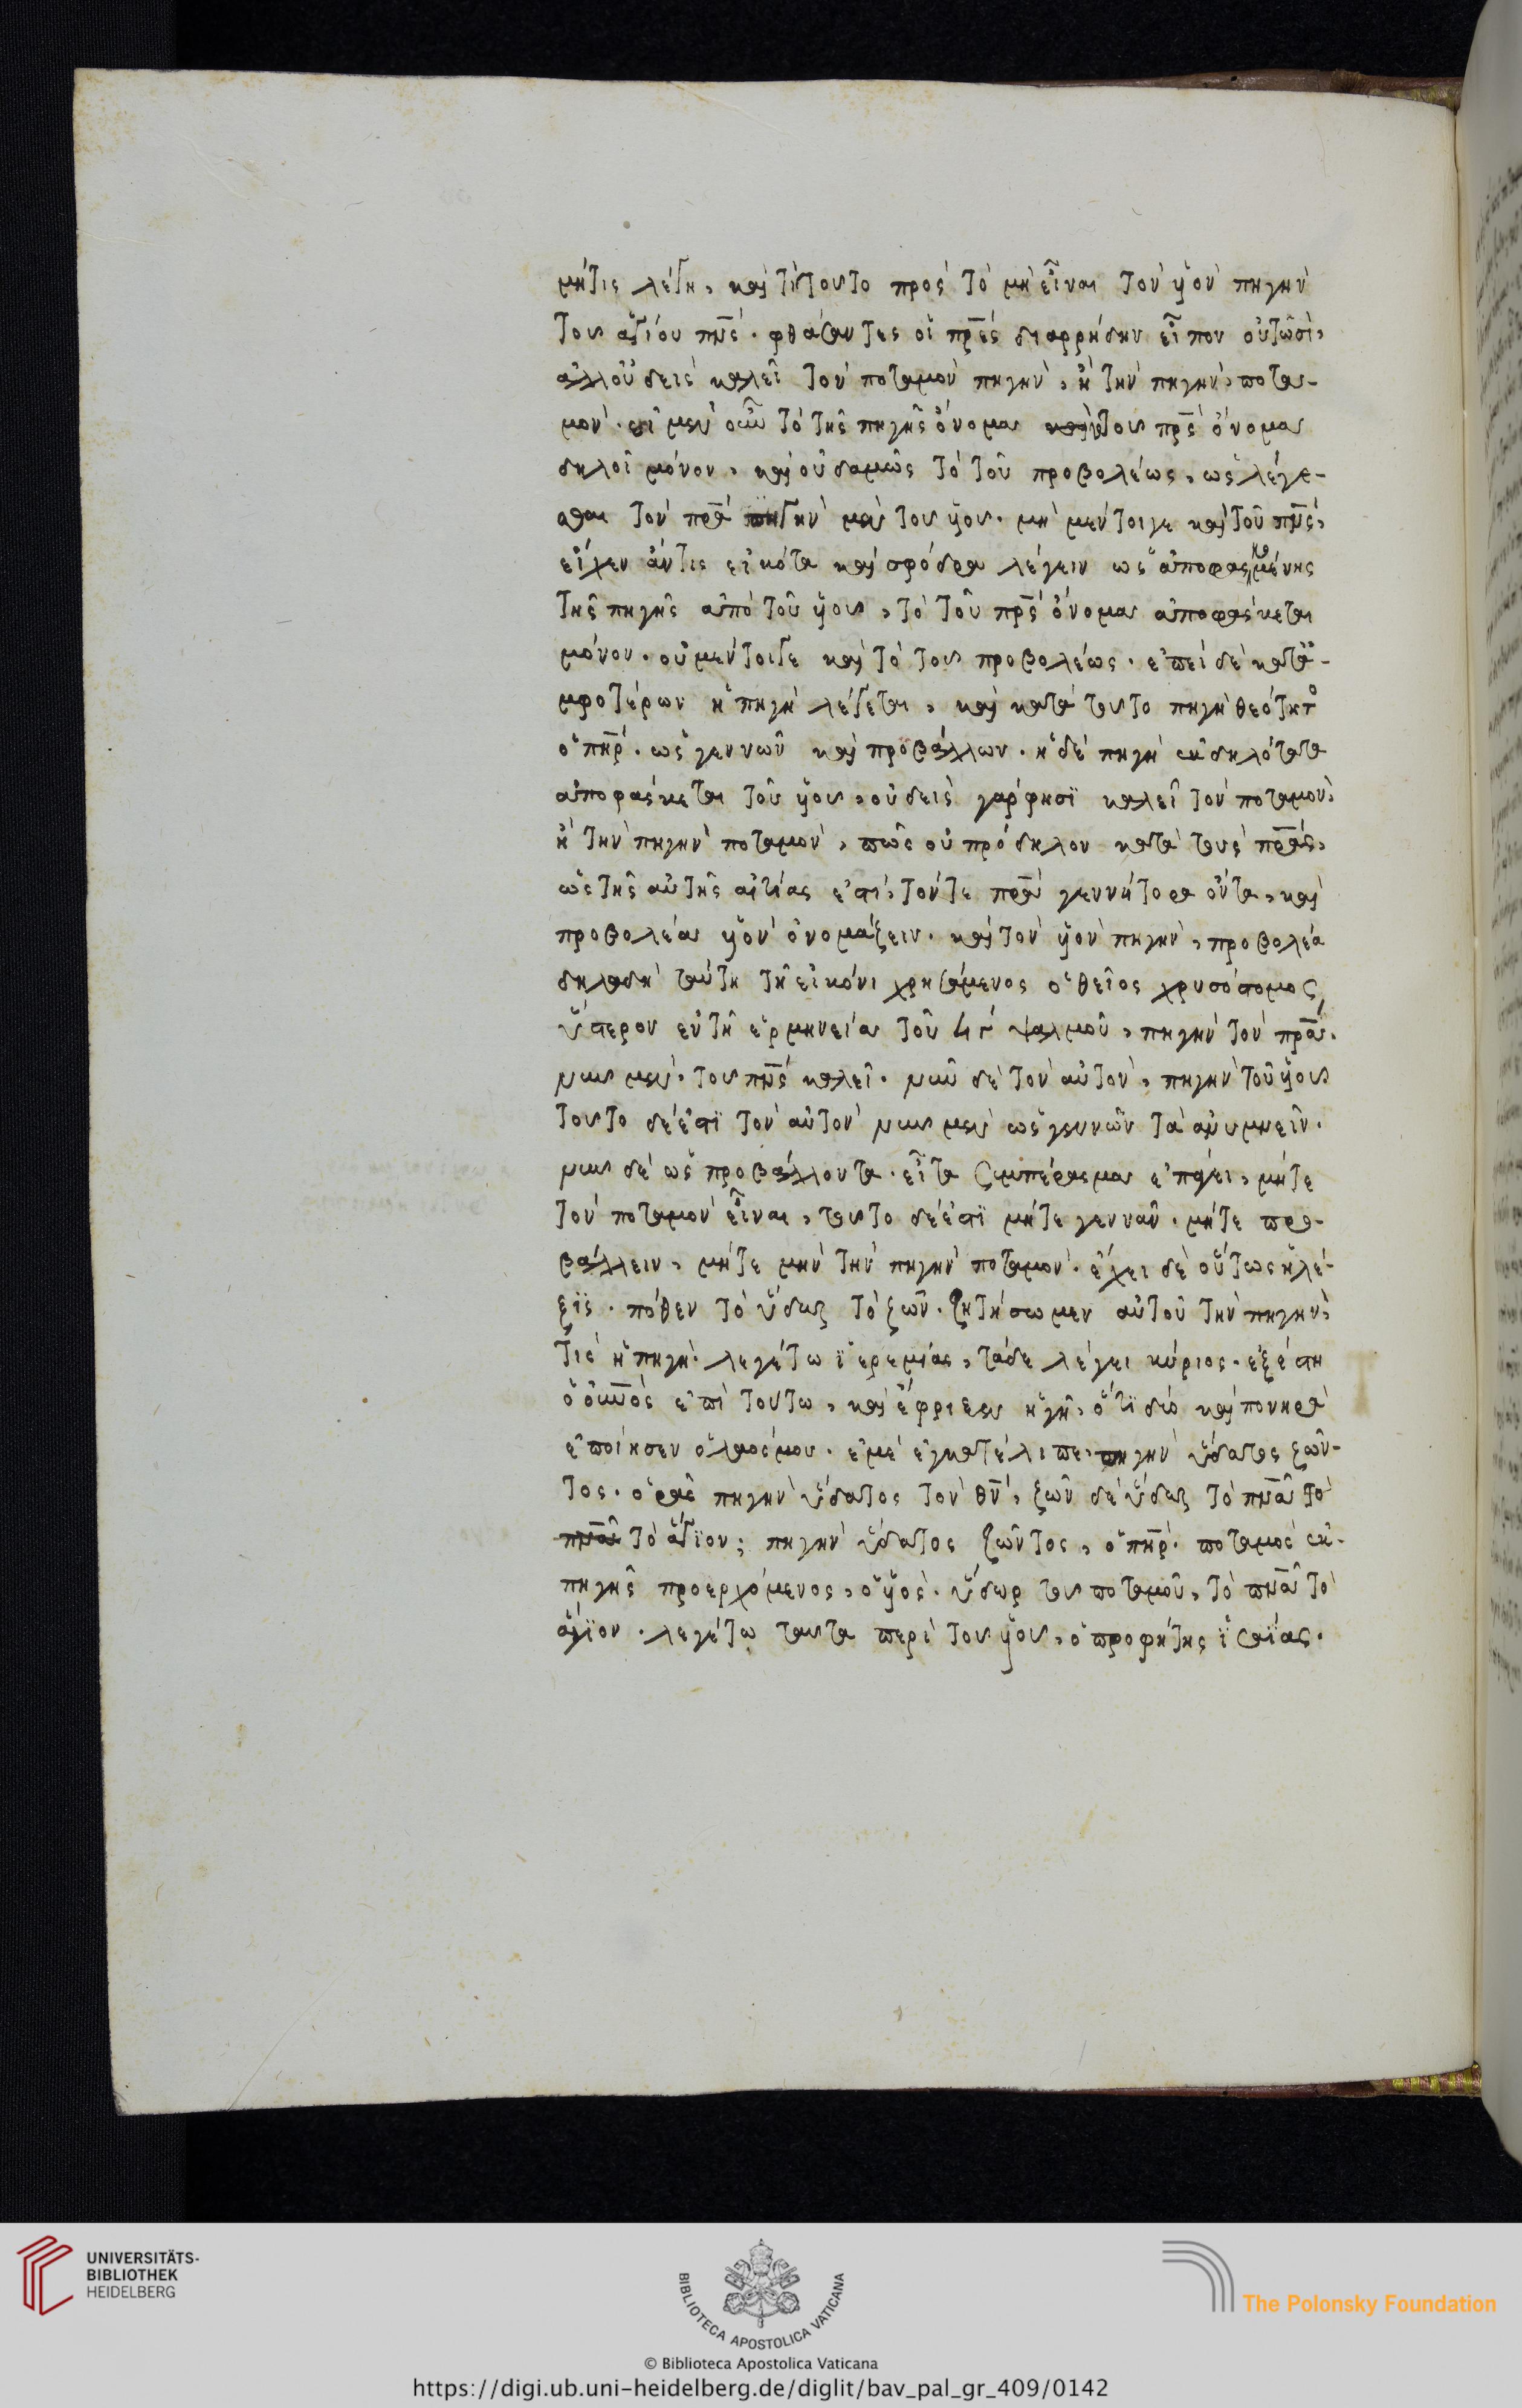 μήτις λέγη, καὶ τί τοῦτο πρὸς τὸ μὴ εἶναι τὸν υἱὸν πηγὴν
τοῦ ἁγίου πν̅ς. φθάσαντες οἱ πρ̅ες διαρρήδην εἶπον οὑτωσί,
ἀλλ' οὐδεὶς καλεῖ τὸν ποταμὸν πηγὴν, ἢ τὴν πηγὴν, ποτα-
μόν. εἰ μὲν οὖν τὸ τῆς πηγῆς ὄνομα τοῦ πρ̅ς ὄνομα
δηλοῖ μόνον, καὶ οὐδαμῶς τὸ τοῦ προβολέως, ὡς λέγε-
σθαι τὸν πρ̅α πηγὴν μὲν τοῦ υἱοῦ. μὴ μέντοιγε καὶ τοῦ πν̅ς,
εἶχεν ἄν τις εἰκότα καὶ σφόδρα λέγειν ὡς ἀποφασκομένης
τῆς πηγῆς ἀπὸ τοῦ υἱοῦ, τὸ τοῦ πρ̅ς ὄνομα ἀποφάσκεται
μόνον. οὐ μέντοιγε καὶ τὸ τοῦ προβολέως. ἐπεὶ δὲ κατὰ ἀ-
μφοτέρων ἡ πηγὴ λέγεται, καὶ κατὰ τοῦτο πηγὴ θεότητο
ὁ πη̅ρ. ὡς γεννῶν καὶ προβάλλων. ἡ δὲ πηγὴ ἐκδηλότατα
ἀποφάσκεται τοῦ υἱοῦ, οὐδεὶς γάρ φησι καλεῖ τὸν ποταμὸν,
ἢ τὴν πηγὴν ποταμὸν, πῶς οὐ πρόδηλον κατὰ τοὺς πρ̅ας,
ὡς τῆς αὐτῆς αἰτίας ἐστὶ, τόν τε πρ̅α γεννήτορα ὄντα, καὶ
προβολέα υἱὸν ὀνομάζειν. καὶ τὸν υἱὸν πηγὴν, προβολέα
δηλαδὴ ταύτη τῆ εἰκόνι χρησάμενος ὁ θεῖος χρυσόστομος
ὕστερον ἐν τῆ ἑρμηνεία τοῦ ψαλμοῦ, πηγὴν τὸν πρ̅α.
νῦν μὲν. τοῦ πν̅ς καλεῖ. νῦν δὲ τὸν αὐτὸν, πηγὴν τοῦ υἱοῦ
τοῦτο δέ ἐστι τὸν αὐτὸν νῦν μὲν ὡς γεννῶντα ἀνυμνεῖν.
νῦν δὲ ὡς προβάλλοντα. εἶτα συμπέρασμα ἐπάγει, μήτε
τὸν ποταμὸν εἶναι, τοῦτο δέ ἐστι μήτε γεννᾶν. μήτε προ-
βάλλειν, μήτε μὴν τὴν πηγὴν ποταμόν. ἔχει δὲ οὕτως ἡ λέ-
ξις. πόθεν τὸ ὕδωρ τὸ ζῶν. ζητήσωμεν αὐτοῦ τὴν πηγὴν,
τίς ἡ πηγὴ. λεγέτω ἱερεμίας, τάδε λέγει κύριος. ἐξέστη
ὁ οὐν̅ος ἐπὶ τούτω, καὶ ἔφριξεν ἡ γῆ, ὅτι δύο καὶ πονηρὰ
ἐποίησεν ὁ λαός μου. ἐμὲ ἐγκατέλιπε, πηγὴν ὕδατος ζῶν-
τος. ὁρᾶς πηγὴν ὕδατος τὸν θν̅, ζῶν δὲ ὕδωρ τὸ πν̅α τὸ
πν̅α τὸ ἅγιον; πηγὴν ὕδατος ζῶντος, ὁ πη̅ρ. ποταμὸς ἐκ
πηγῆς προερχόμενος, ὁ υἱός. ὕδωρ τοῦ ποταμοῦ, τὸ πν̅α τὸ
ἅγιον. λεγέτω ταῦτα περὶ τοῦ υἱοῦ, ὁ προφήτης ἡσαΐας.
UNIVERSITÄTS-
BIBLIOTHEK
HEIDELBERG
BIBLIOTECA APOSTOLICA VATICANA
The Polonsky Foundation
© Biblioteca Apostolica Vaticana
https://digi.ub.uni-heidelberg.de/diglit/bav_pal_gr_409/0142